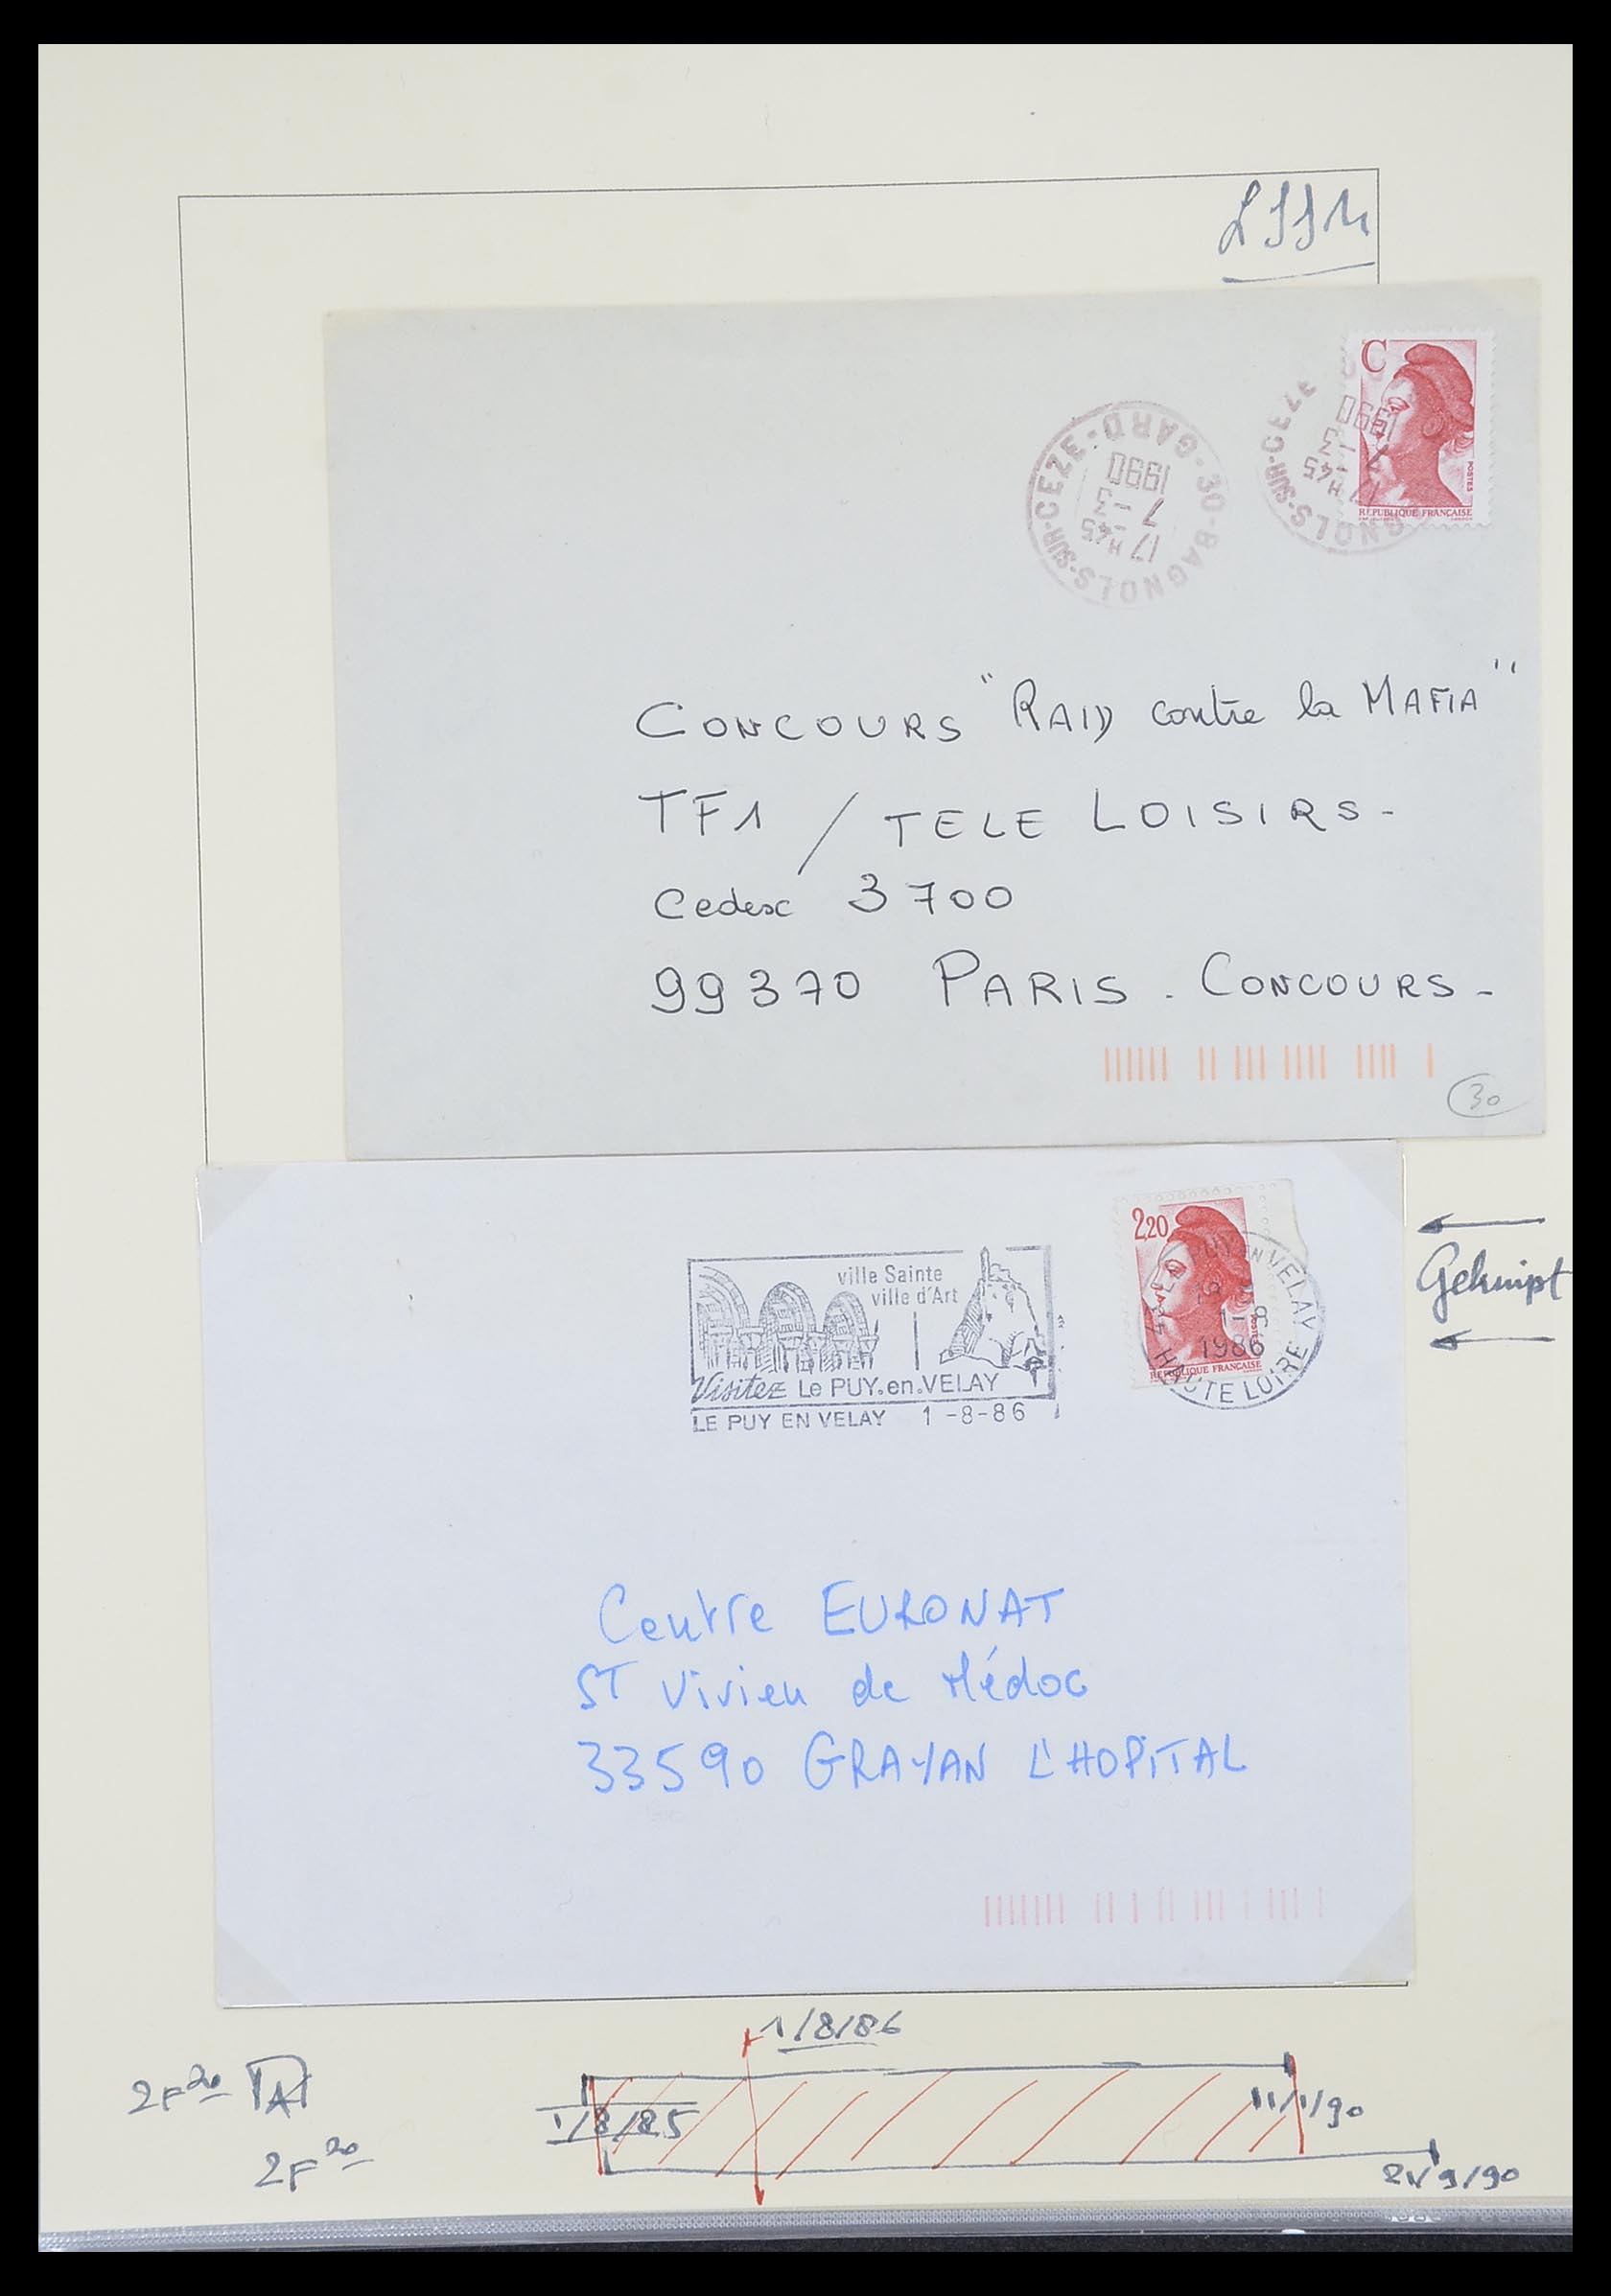 C
POSTES
RÉPUBLIQUE FRANÇAISE
30-BAGNOLS-SUR-CEZE-GARD-
17 H45
7 -3
1990
GNOLS-SUR-CEZE
17 H45
7 -3
1990
CONCOURS "RAID contre la MAFIA"
TF1 / TELE LOISIRS-
Cedex 3700
99370 PARIS . CONCOURS-
30
2,20
RÉPUBLIQUE FRANÇAISE
EN VELAY
1-8
1986
HAUTE LOIRE
ville Sainte
ville d'Art
Visitez Le PUY.en.VELAY
LE PUY EN VELAY 1-8-86
Geknipt
Centre EURONAT
ST Vivien de Médoc
33590 GRAYAN L'HOPITAL
1/8/86
2F20
1/8/85
11/1/90
2F20
9/90